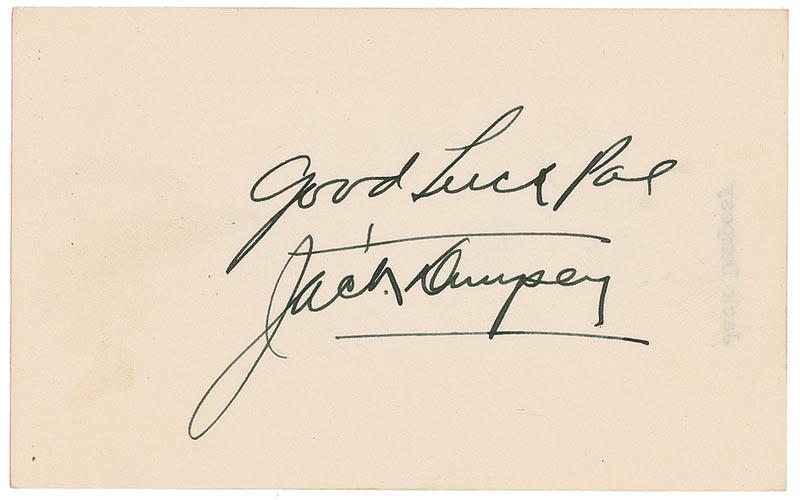 Good Luck Pal
Jack Dempsey
Jack Dempsey